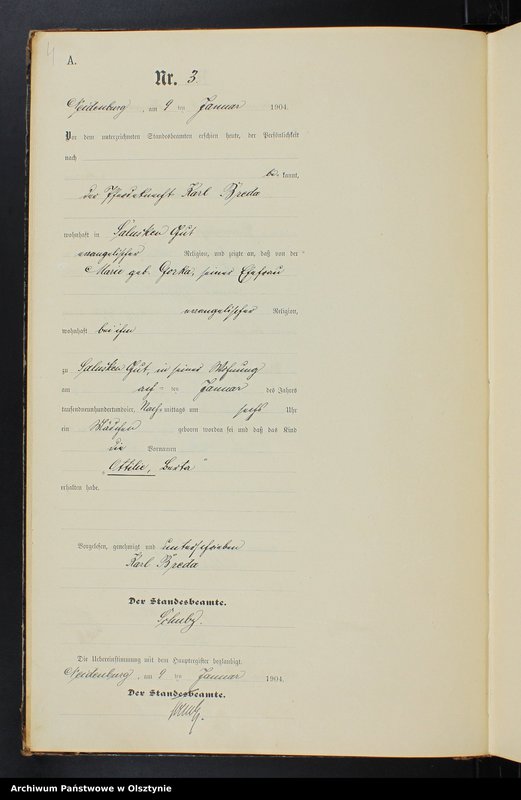 4
A.
Nr. 3.
Neidenburg, am 9 ten Januar 1904.
Vor dem unterzeichneten Standesbeamten erschien heute, der Persönlichkeit
nach
be kannt,
der Pferdeknecht Karl Breda
wohnhaft in Salusken Gut
evangelischer Religion, und zeigte an, daß von der
Marie geb. Gorka, seiner Ehefrau
evangelischer Religion,
wohnhaft bei ihm
zu Salusken Gut, in seiner Wohnung
am ten Januar des Jahres
tausendneunhundertundvier, Nach mittags um sechs Uhr
ein Mädchen geboren worden sei und daß das Kind
die Vornamen
„Ottilie, Berta“
erhalten habe.
Vorgelesen, genehmigt und unterschrieben
Karl Breda
Der Standesbeamte.
Schulz.
Die Uebereinstimmung mit dem Hauptregister beglaubigt.
Neidenburg, am 9 ten Januar 1904.
Der Standesbeamte.
Archiwum Państwowe w Olsztynie